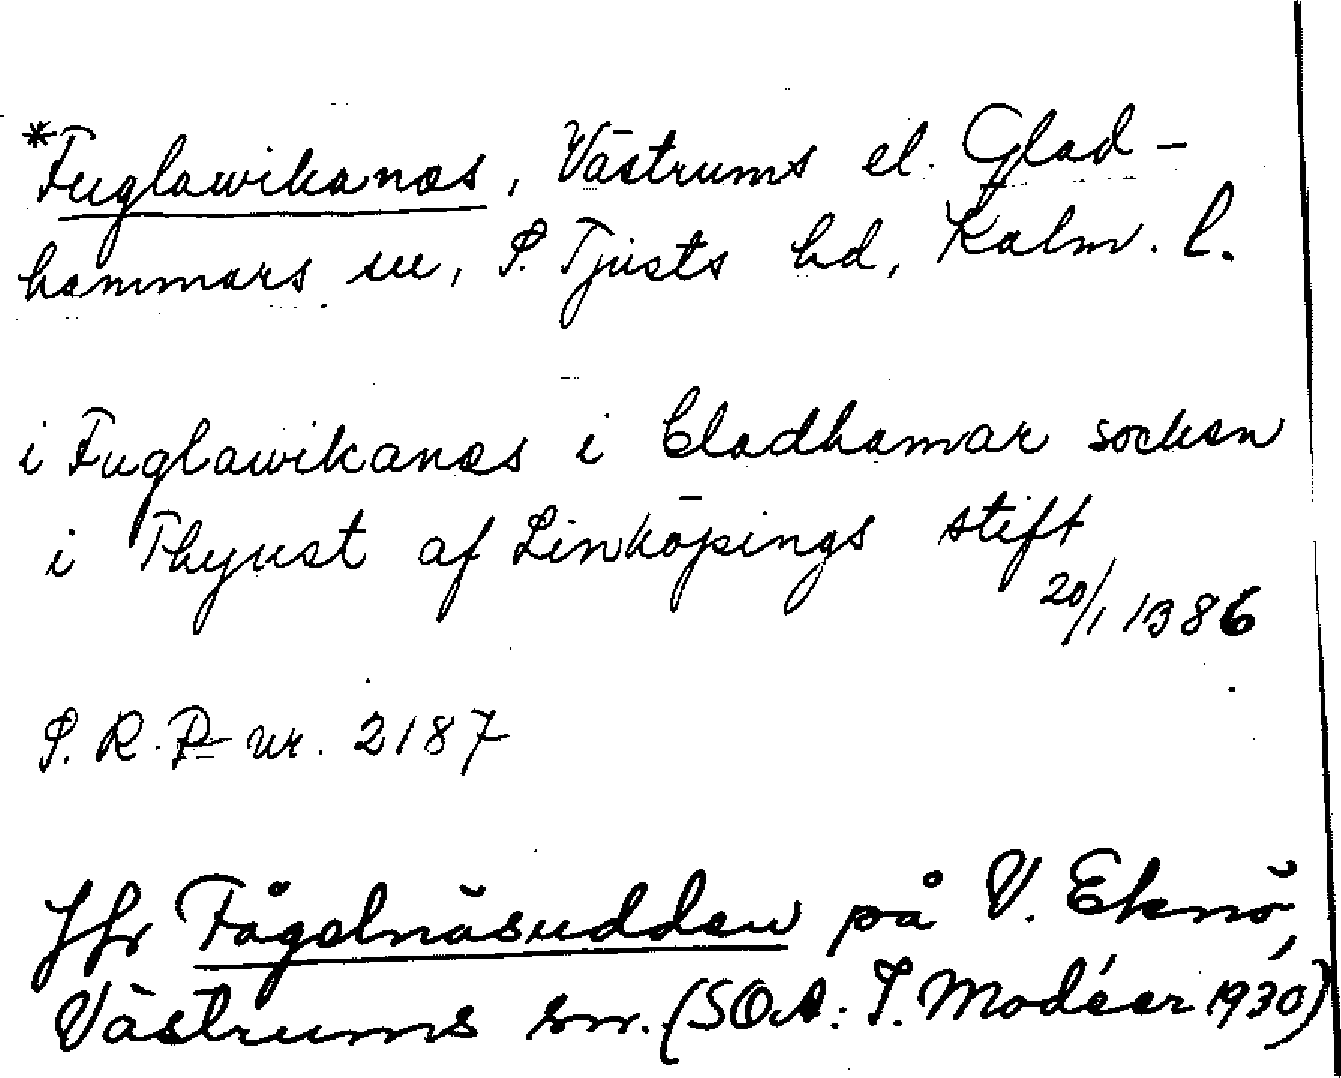 *Fuglawikanæs, Västrums el. Glad-
hammars sn, S. Tjusts hd, Kalm. l.
i Fuglawikanæs i Gladhamar sockn
i Thyust af Linköpings stift
20/1 1386
S. R. P. nr. 2187
Jfr Fågelnäsudden på V. Eknö,
Västrums sn. (SOA: I. Modéer 1930)